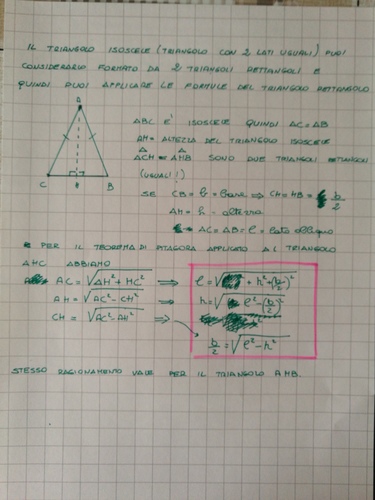 IL TRIANGOLO ISOSCELE (TRIANGOLO CON 2 LATI UGUALI) PUOI
CONSIDERARLO FORMATO DA 2 TRIANGOLI RETTANGOLI E
QUINDI PUOI APPLICARE LE FORMULE DEL TRIANGOLO RETTANGOLO
A
C H B
ABC E' ISOSCELE QUINDI AC=AB
AH= ALTEZZA DEL TRIANGOLO ISOSCELE
ACH = AHB SONO DUE TRIANGOLI RETTANGOLI
(UGUALI!)
SE CB = b = base ⇒ CH=HB = b/2
AH = h - altezza
AC=AB=l= lato obliquo
PER IL TEOREMA DI PITAGORA APPLICATO AL TRIANGOLO
AHC ABBIAMO
AC = √(AH² + HC²) ⇒ l = √(h² + (b/2)²)
AH = √(AC² - CH²) ⇒ h = √(l² - (b/2)²)
CH = √(AC² - AH²) ⇒
b/2 = √(l² - h²)
STESSO RAGIONAMENTO VALE PER IL TRIANGOLO AHB.